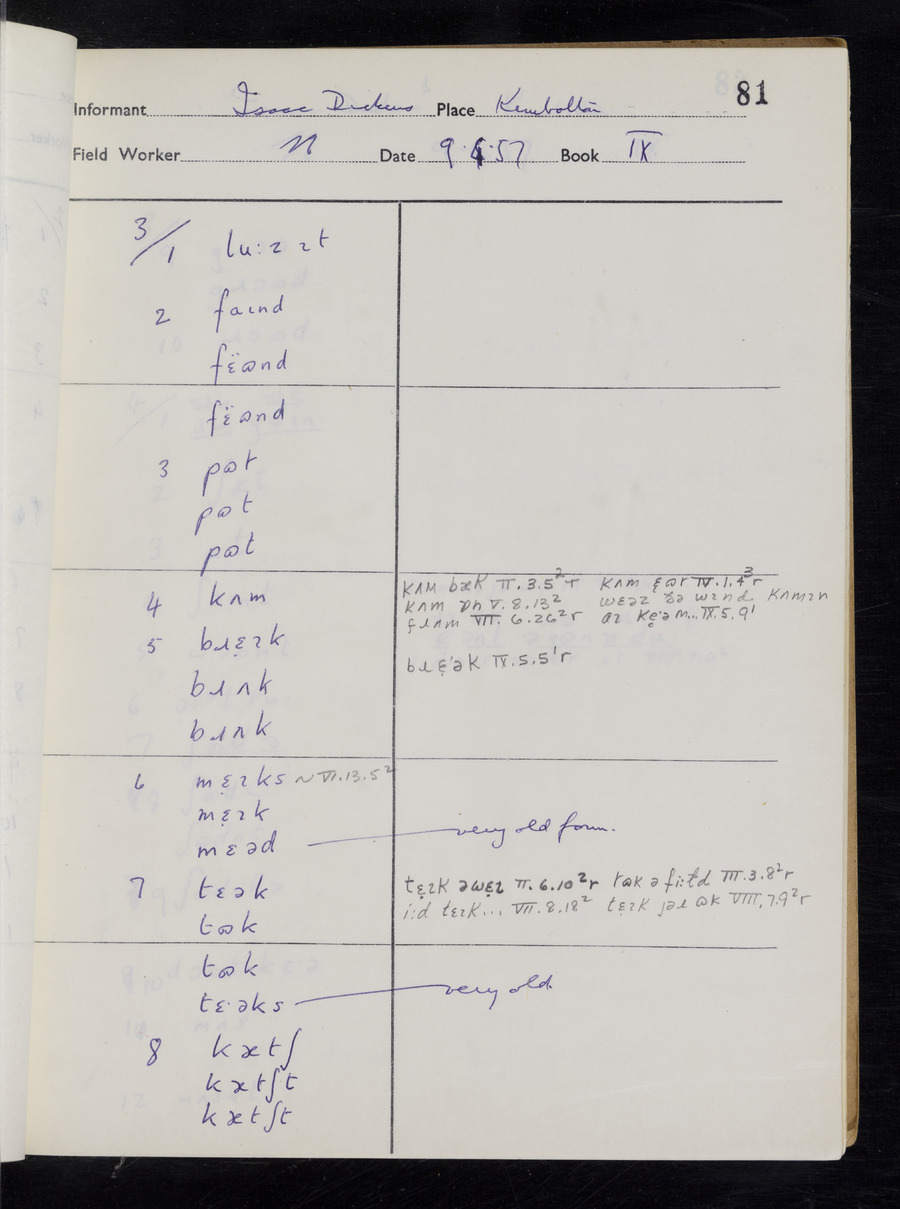 81
Informant Isaac Dickens Place Kimbolton
Field Worker N Date 9.4.57 Book IX
3/1 lu:zɪt
2 faɪnd
fɛ̈ɷnd
fɛ̈ɷnd
3 pɷt
pɷt
pɷt
4 kʌm
kʌm bæk II.3.5²r kʌm ɷr IV.1.4³r
kʌm ɒn V.8.13² wɛəz ðə wɪnd kʌmɪn
VII.6.26²r IX.5.9¹
5 bɹɛ̣ɪk
bɹɛ̣·ək IV.5.5¹r
bɹʌk
bɹʌk
6 mɛ̣ɪks ~ VI.13.5²
mɛ̣ɪk
mɛəd very old form.
7 tɛək
tɛ̣ɪk əwɛ̣ɪ II.6.10²r tɷk ə III.3.8²r
i:d tɛɪk... VII.8.18² tɛ̣ɪk jəɹ ɷk VIII.7.9²r
tɷk
tɷk
tɛ·əks very old
8 kætʃ
kætʃt
kætʃt